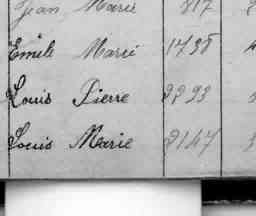 Jean Marie 817
Emile Marie 1738
Louis Pierre 2293
Louis Marie 2147